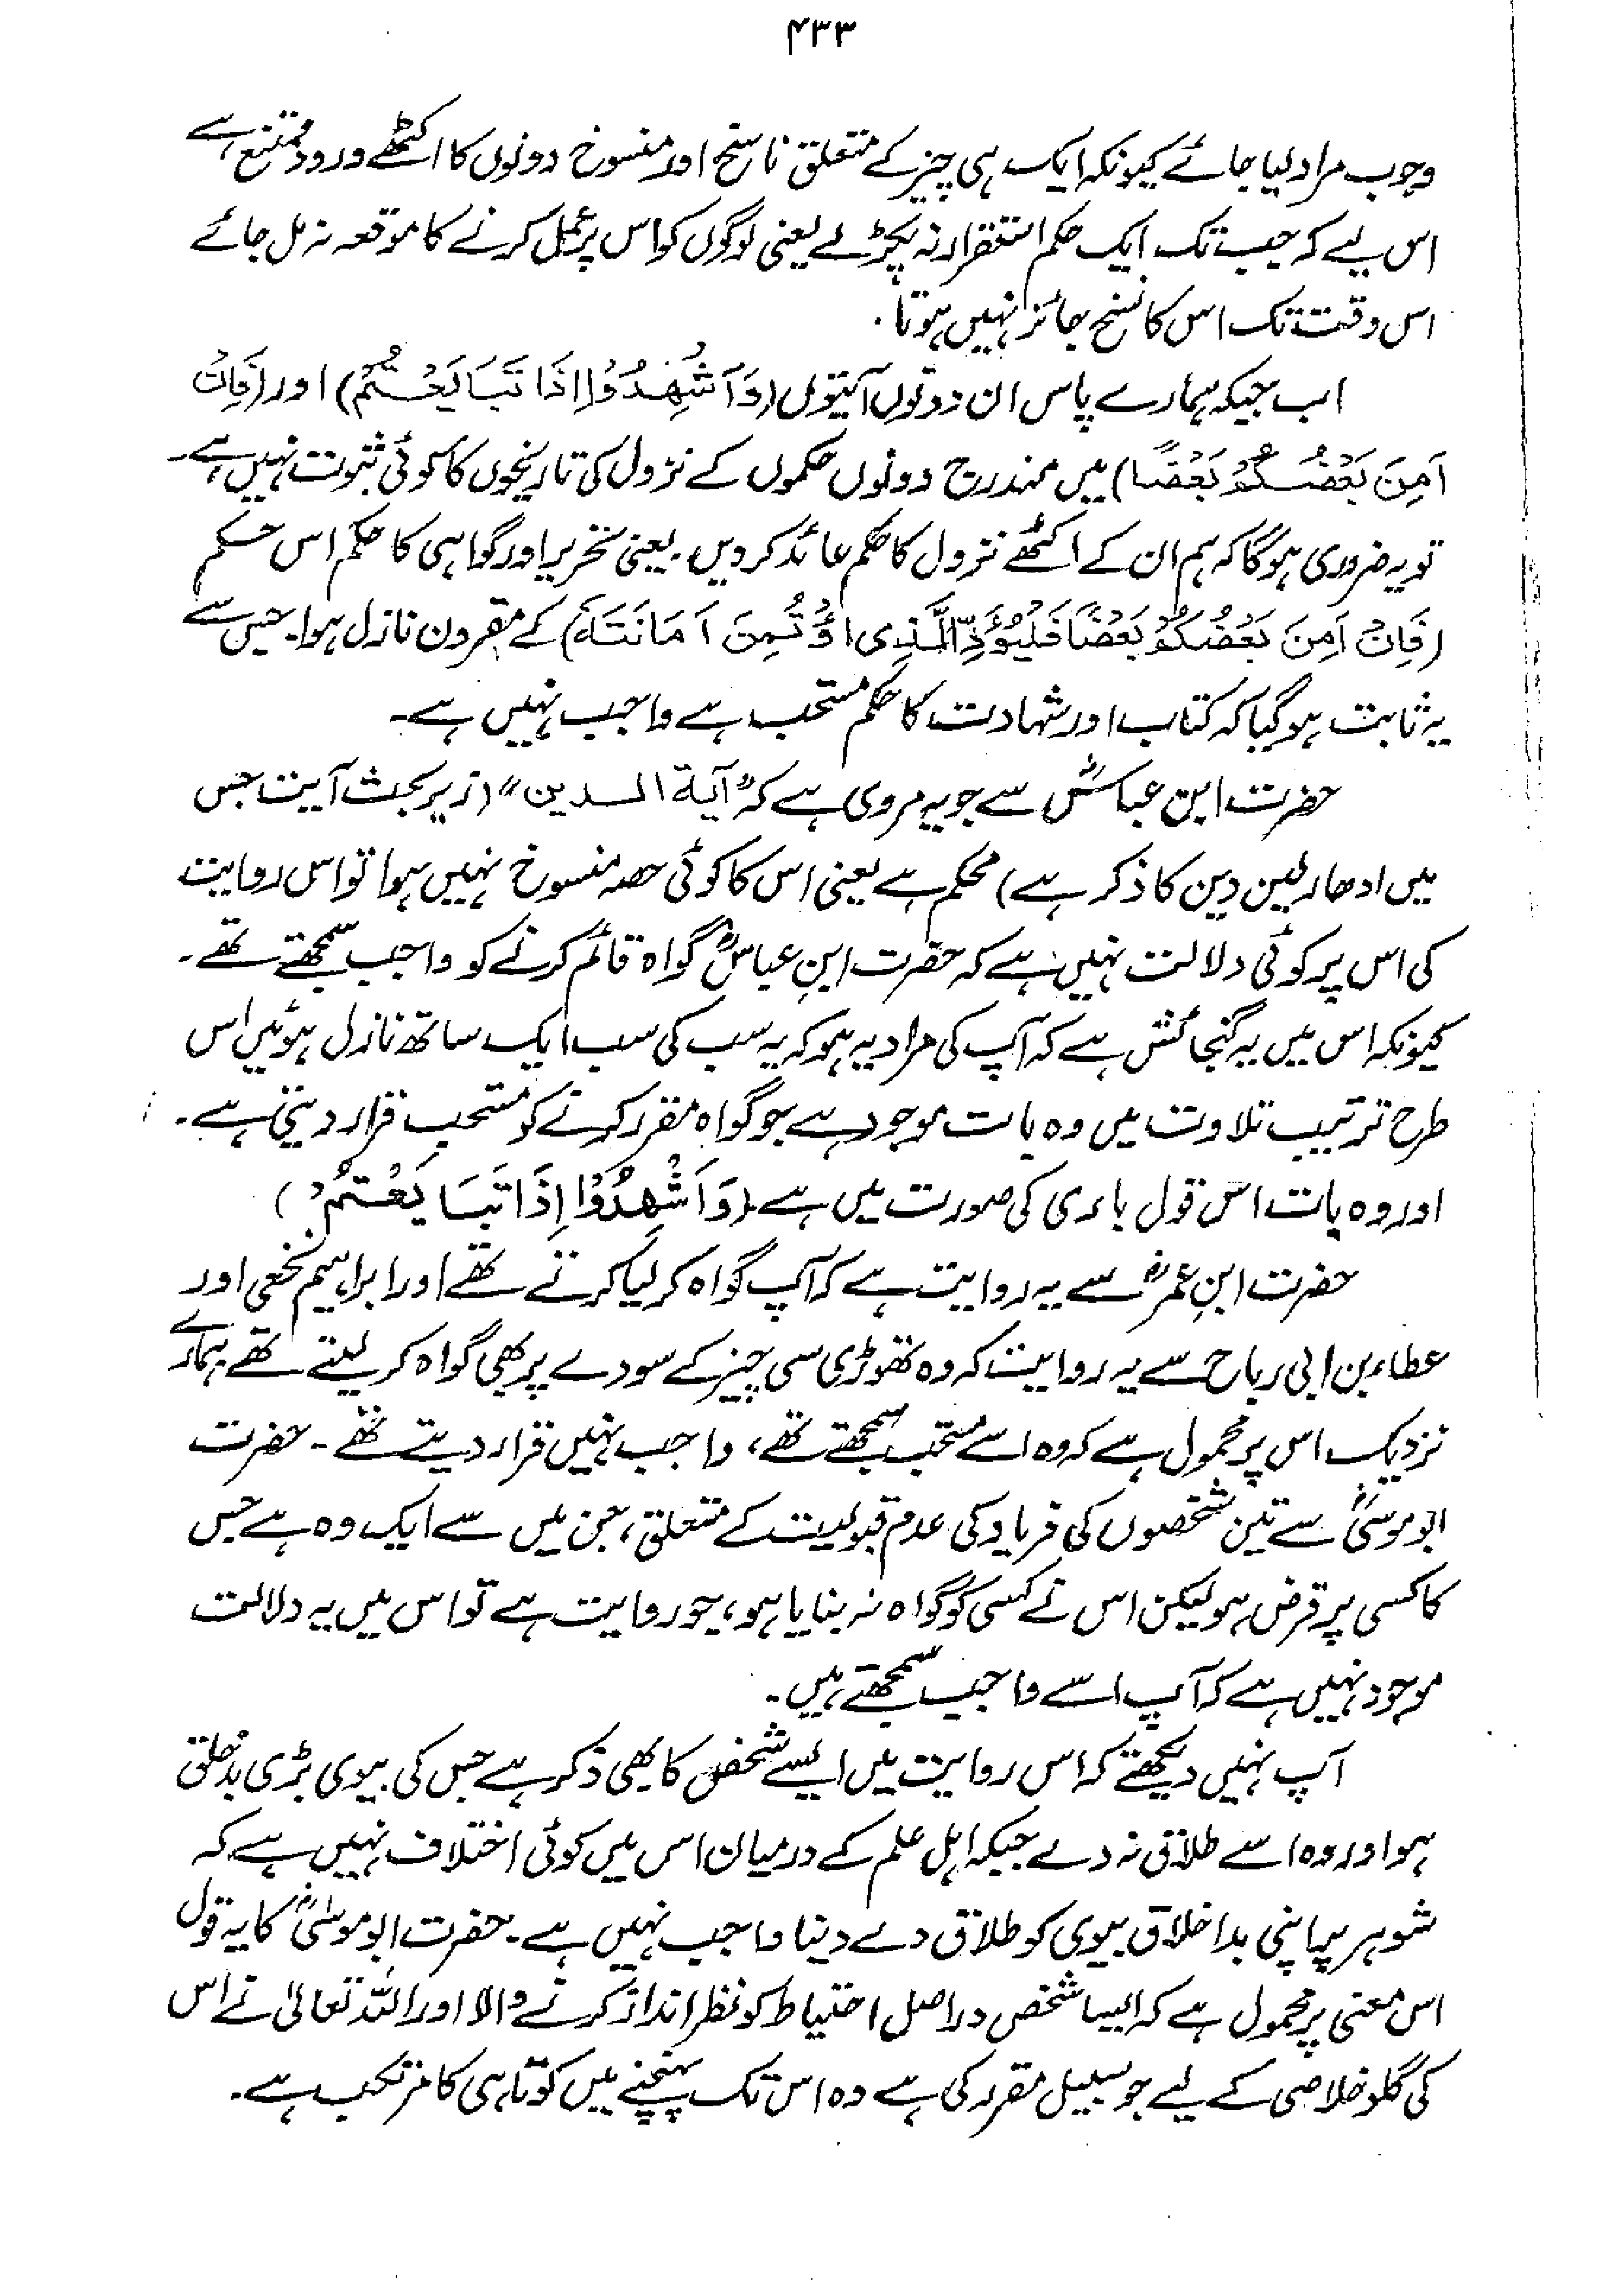 ۴۳۳
وجوب مراد لیا جائے کیونکہ ایک ہی چیز کے متعلق ناسخ اور منسوخ دونوں کا اکٹھے ورود ممتنع ہے
اس لیے کہ جب تک ایک حکم استقرار نہ پکڑ لے یعنی لوگوں کو اس پر عمل کرنے کا موقعہ نہ مل جائے
اس وقت تک اس کا نسخ جائز نہیں ہوتا۔
اب جبکہ ہمارے پاس ان دونوں آیتوں (وَاَشْهِدُوْا اِذَا تَبَايَعْتُمْ) اور (فَاِنْ
اَمِنَ بَعْضُكُمْ بَعْضًا) میں مندرج دونوں حکموں کے نزول کی تاریخوں کا کوئی ثبوت نہیں ہے۔
تو یہ ضروری ہوگا کہ ہم ان کے اکٹھے نزول کا حکم عائد کر دیں۔ یعنی تحریر اور گواہی کا حکم اس حکم
(فَاِنْ اَمِنَ بَعْضُكُمْ بَعْضًا فَلْيُؤَدِّ الَّذِی اؤْتُمِنَ اَمَانَتَهٗ) کے مقرون نازل ہوا۔ جس سے
یہ ثابت ہو گیا کہ کتاب اور شہادت کا حکم مستحب ہے واجب نہیں ہے۔
حضرت ابن عباسؓ سے جو یہ مروی ہے کہ "آیة الدین" (زیر بحث آیت جس
میں ادھار لین دین کا ذکر ہے) محکم ہے یعنی اس کا کوئی حصہ منسوخ نہیں ہوا تو اس روایت
کی اس پر کوئی دلالت نہیں ہے کہ حضرت ابنِ عباسؓ گواہ قائم کرنے کو واجب سمجھتے تھے۔
کیونکہ اس میں یہ گنجائش ہے کہ آپ کی مراد یہ ہو کہ یہ سب کی سب ایک ساتھ نازل ہوئیں اس
طرح ترتیب تلاوت میں وہ بات موجود ہے جو گواہ مقرر کرنے کو مستحب قرار دیتی ہے۔
اور وہ بات اس قول باری کی صورت میں ہے (وَاَشْهِدُوْا اِذَا تَبَايَعْتُمْ)
حضرت ابنِ عمرؓ سے یہ روایت ہے کہ آپ گواہ کر لیا کرتے تھے اور ابراہیم نخعی اور
عطاء بن ابی رباح سے یہ روایت کہ وہ تھوڑی سی چیز کے سودے پر بھی گواہ کر لیتے تھے ہمارے
نزدیک اس پر محمول ہے کہ وہ اسے مستحب سمجھتے تھے، واجب نہیں قرار دیتے تھے۔ حضرت
ابو موسیٰؓ سے تین شخصوں کی فریاد کی عدم قبولیت کے متعلق، جن میں سے ایک وہ ہے جس
کا کسی پر قرض ہو لیکن اس نے کسی کو گواہ نہ بنایا ہو، جو روایت ہے تو اس میں یہ دلالت
موجود نہیں ہے کہ آپ اسے واجب سمجھتے ہیں۔
آپ نہیں دیکھتے کہ اس روایت میں ایسے شخص کا بھی ذکر ہے جس کی بیوی بڑی بدخلق
ہو اور وہ اسے طلاق نہ دے جبکہ اہل علم کے درمیان اس میں کوئی اختلاف نہیں ہے کہ
شوہر پر اپنی بداخلاق بیوی کو طلاق دے دینا واجب نہیں ہے۔ حضرت ابو موسیٰؓ کا یہ قول
اس معنی پر محمول ہے کہ ایسا شخص دراصل احتیاط کو نظر انداز کرنے والا اور اللہ تعالیٰ نے اس
کی گلو خلاصی کے لیے جو سبیل مقرر کی ہے وہ اس تک پہنچنے میں کوتاہی کا مرتکب ہے۔